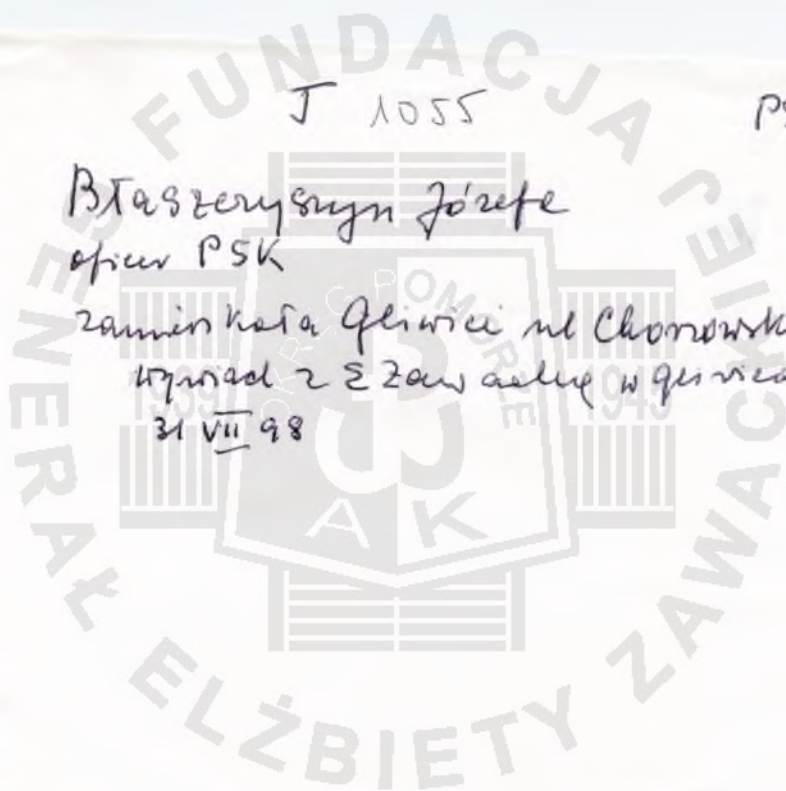 J 1055
PS
Błaszczyszyn Józefa
oficer PSK
zamieszkała Gliwice ul Chorzowsk
wywiad z E Zawacką w Gliwicac
31 VII 98
FUNDACJA
GENERAŁ ELŻBIETY ZAWACKIEJ
OKRĘG POMORZE
1939 1945
AK